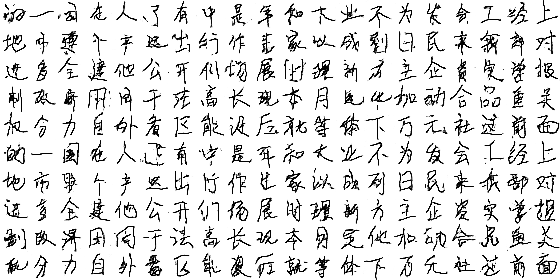 的一国在人了有中是年和大业不为发会工经上
地市要个产这出行作生家以成到日民来我部对
进多全建他公开们场展时理新方主企资实学报
制政济用同于法高长现本月定化加动合品重关
机分力自外者区能设后就等体下万元社过前面
的一国在人了有中是年和大业不为发会工经上
地市要个产这出行作生家以成到日民来我部对
进多全建他公开们场展时理新方主企资实学报
制政济用同于法高长现本月定化加动合品重关
机分力自外者区能设后就等体下万元社过前面